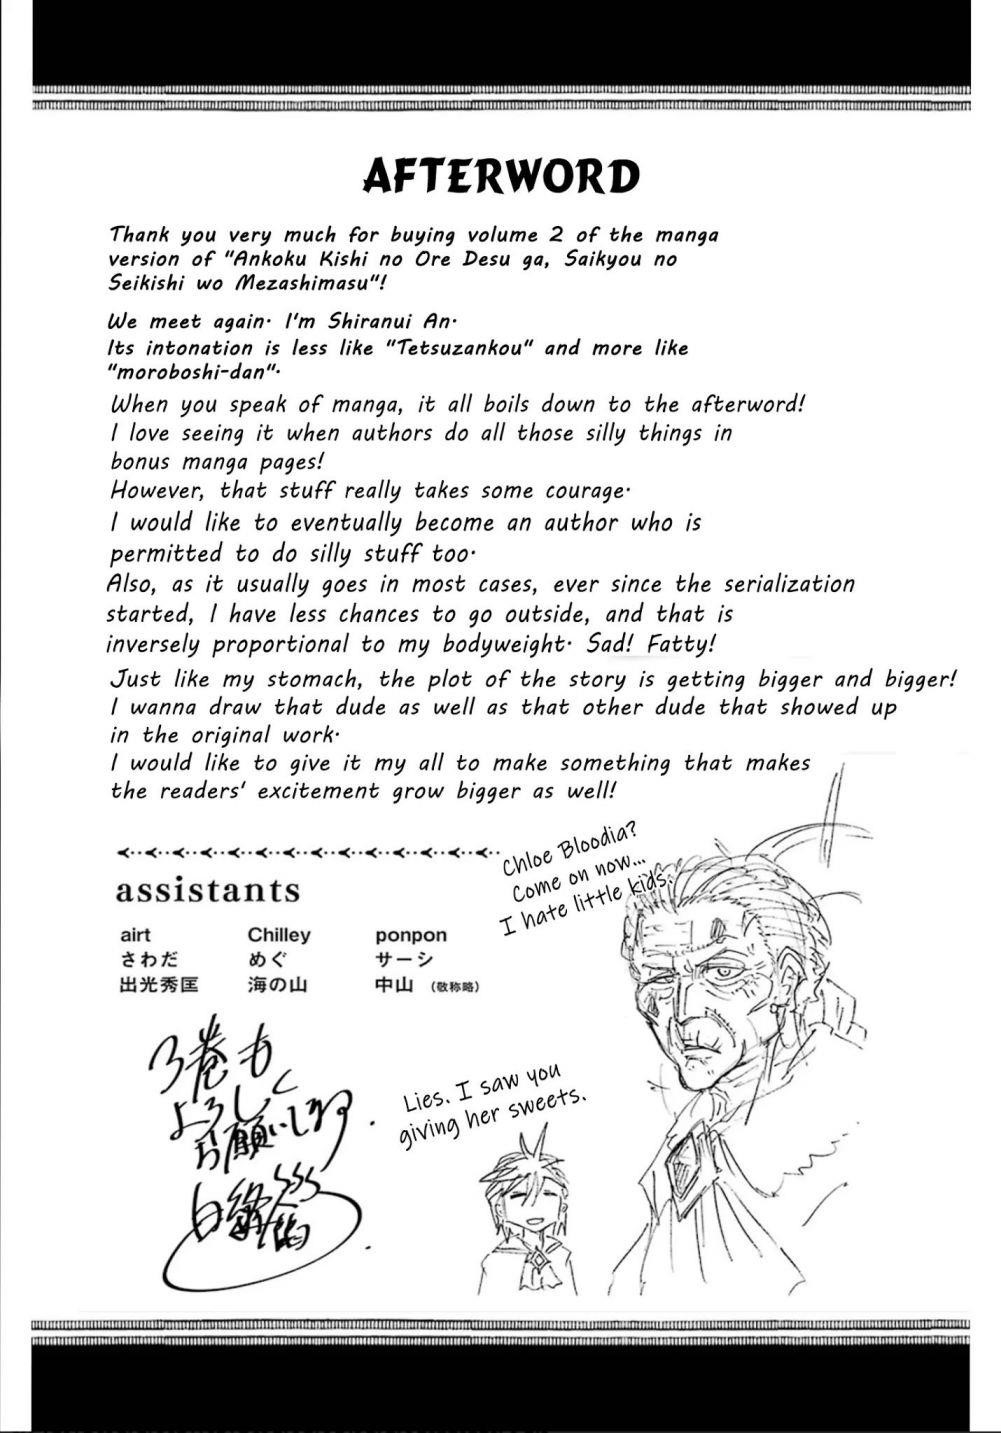 AFTERWORD
Thank you very much for buying volume 2 of the manga
version of "Ankoku Kishi no Ore Desu ga, Saikyou no
Seikishi wo Mezashimasu"!
We meet again. I'm Shiranui An.
Its intonation is less like "Tetsuzankou" and more like
"moroboshi-dan".
When you speak of manga, it all boils down to the afterword!
I love seeing it when authors do all those silly things in
bonus manga pages!
However, that stuff really takes some courage.
I would like to eventually become an author who is
permitted to do silly stuff too.
Also, as it usually goes in most cases, ever since the serialization
started, I have less chances to go outside, and that is
inversely proportional to my bodyweight. Sad! Fatty!
Just like my stomach, the plot of the story is getting bigger and bigger!
I wanna draw that dude as well as that other dude that showed up
in the original work.
I would like to give it my all to make something that makes
the readers' excitement grow bigger as well!
Chloe Bloodia?
Come on now...
I hate little kids.
assistants
airt Chilley ponpon
さわだ めぐ サーシ
出光秀匡 海の山 中山 (敬称略)
3巻も
よろしく
お願いします.
Lies. I saw you
giving her sweets.